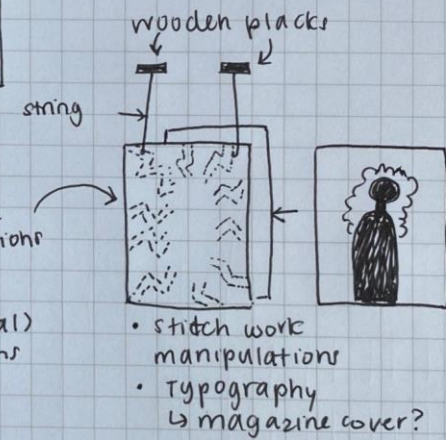 wooden placks
string
ions
al)
ns
• stitch work
manipulations
• Typography
↳ magazine cover?